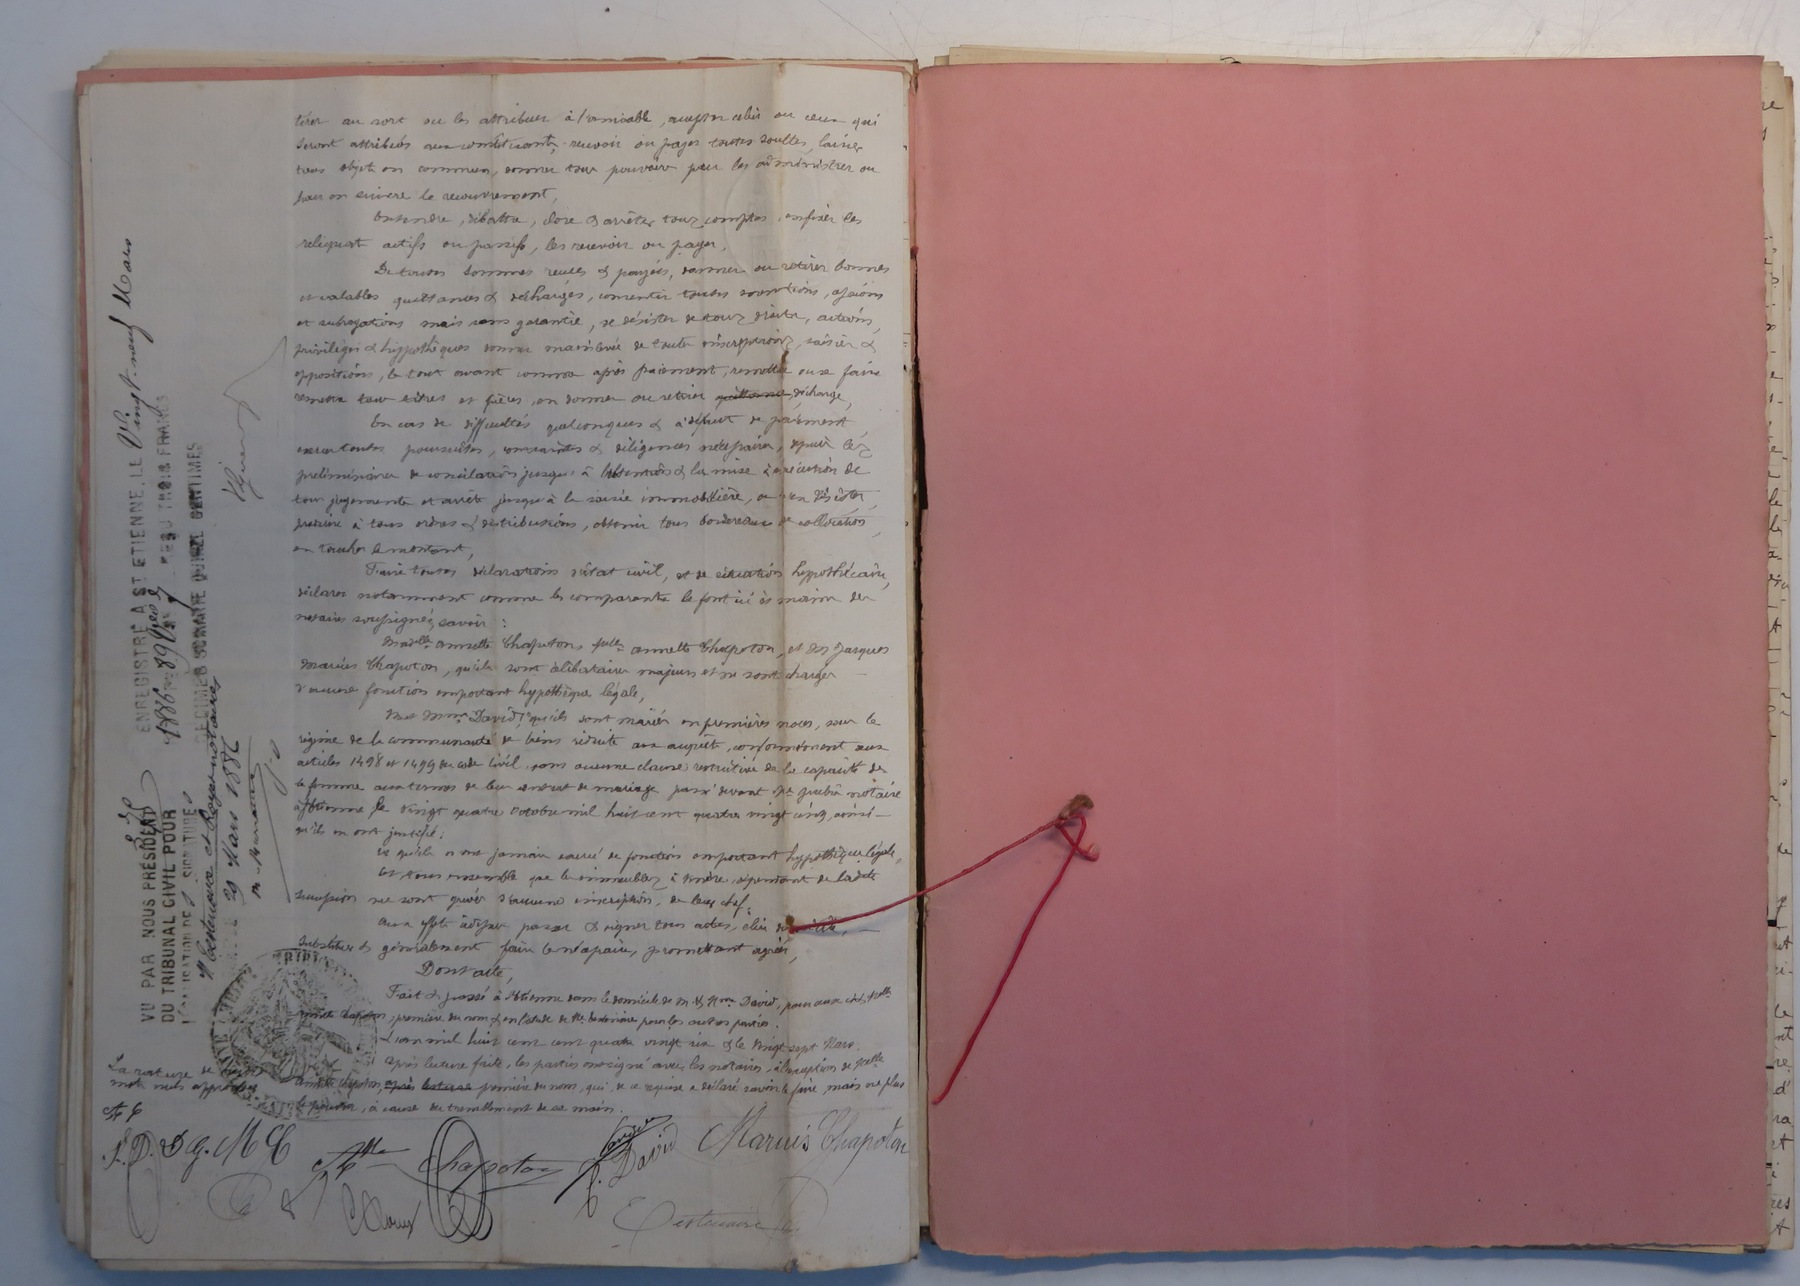 tirer au sort ou les attribuer à l'amiable, accepter celui ou ceux qui
seront attribués aux constituants, recevoir ou payer toutes soultes, laisser
tous objets en commun, donner tous pouvoirs pour les administrer ou
pour en suivre le recouvrement,
Entendre, débattre, clore & arrêter tous comptes, en fixer les
reliquat actifs ou passifs, les recevoir ou payer,
De toutes sommes reçues & payées, donner ou retirer bonnes
et valables quittances & décharges, consentir toutes mentions,
et subrogations mais sans garantie, se désister de tous droits, actions,
privilèges & hypothèques donner mainlevée de toutes inscriptions, saisies &
oppositions, le tout avant comme après paiement, remettre ou se faire
remettre tous titres et pièces, en donner ou retirer quittance, décharge,
En cas de difficultés quelconques & à défaut de paiement
exercer toutes poursuites, contraintes & diligences nécessaires, depuis les
préliminaires de conciliation jusqu'à l'obtention & la mise à exécution de
tous jugements et arrêts jusqu'à la saisie immobilière, ou s'en désister,
produire à tous ordres & distributions, obtenir tous bordereaux de collocation,
en toucher le montant,
Faire toutes déclarations d'état civil, et de situation hypothécaire,
déclarer notamment comme les comparants le font ici ès mains des
notaires soussignés, savoir :
Madelle Annette Chapoton, Melle Annette Chapoton, et Mrs Jacques
Marius Chapoton, qu'ils sont célibataires majeurs et ne sont chargés
d'aucune fonction emportant hypothèque légale,
M et Mme David, qu'ils sont mariés en premières noces, sous le
régime de la communauté de biens réduite aux acquêts, conformément aux
articles 1498 et 1499 du code civil, sans aucune clause restrictive de la capacité de
la femme aux termes de leur contrat de mariage passé devant Me notaire
à St Etienne le vingt quatre octobre mil huit cent quatre vingt cinq, ainsi
qu'ils en ont justifié;
et qu'ils n'ont jamais exercé de fonctions emportant hypothèque légale,
Et tous ensemble que les immeubles à vendre, dépendant de ladite
succession ne sont grevés d'aucune inscription, de leur chef;
Aux effets ci-dessus passer & signer tous actes, élire domicile,
substituer & généralement faire le nécessaire, promettant agréer,
Dont acte,
Fait & passé à St Etienne dans le domicile de M & Mme David, pour eux et Melle
Annette Chapoton, première du nom & en l'étude de Me Testenoire pour les autres parties.
L'an mil huit cent cent quatre vingt six & le Vingt sept Mars.
Après lecture faite, les parties ont signé avec les notaires, à l'exception de Melle
Annette Chapoton, après lecture première du nom, qui, de ce requise a déclaré savoir le faire, mais ne plus
le pouvoir, à cause du tremblement de sa main.
La rature de
mots nuls approuvée
A C
F.D. D J. M C
Chapoton
C. David
Marius Chapoton
Roux
Testenoire
ENREGISTRÉ A ST ETIENNE, LE Vingt-neuf Mars
1886 F° 89
REÇU TROIS FRANCS
DÉCIMES SOIXANTE QUINZE CENTIMES
VU PAR NOUS PRÉSIDENT
DU TRIBUNAL CIVIL POUR
LÉGALISATION DE SIGNATURE
Testenoire et Roux notaires
29 Mars 1886